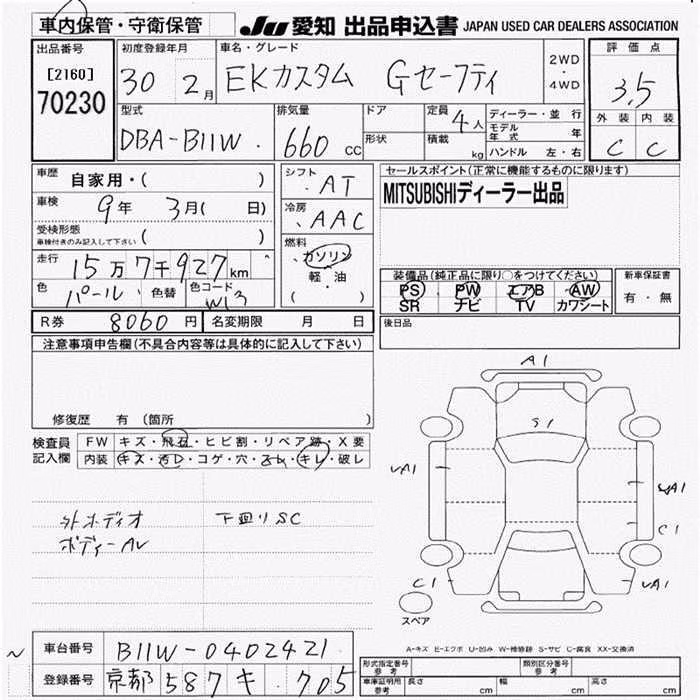 車内保管・守衛保管 JU 愛知 出品申込書 JAPAN USED CAR DEALERS ASSOCIATION
出品番号
[2160]
70230
初度登録年月
30 2月
車名・グレード
EKカスタム Gセーフティ
2WD
・
4WD
評価点
3.5
外装 内装
C C
型式
DBA-B11W.
排気量
660 CC
ドア
形状
定員
4人
積載
kg
ディーラー・並行
モデル年式 年
ハンドル 左・右
車歴
自家用・( )
車検
9年 3月( 日)
受検形態
車検付きのみ記入して下さい ( )
走行
15万7千927km
色
パール
色替
色コード
W13
シフト
AT
冷房
AAC
燃料
ガソリン
軽・油
( )
セールスポイント(正常に機能するものに限ります)
MITSUBISHIディーラー出品
装備品(純正品に限り○をつけてください)
PS PW エアB AW
SR ナビ TV カワシート
新車保証書
有・無
R券 8060円 名変期限 月 日
後日品
注意事項申告欄(不具合内容等は具体的に記入して下さい)
修復歴 有 (箇所 )
検査員
記入欄
FW キズ・飛石・ヒビ割・リペア跡・X要
内装 キズ・汚レ・コゲ・穴・スレ・キレ・破レ
外オーディオ
ボディーAU
下廻りSC
A1
S1
UA1
UA1
C1
C1
UA1
スペア
A-キズ E-エクボ U-凹み W-補修跡 S-サビ C-腐食 XX-交換済
~
車台番号 B11W-0402421
登録番号 京都 587 キ . 705
形式指定番号
参考
類別区分番号
参考
車庫証明用
参考
長さ cm 幅 cm 高さ cm